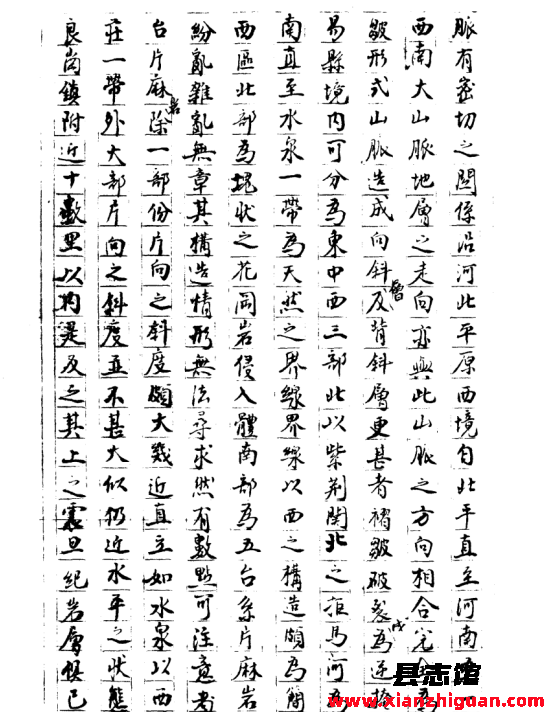 脈有密切之關係沿河北平原西境自北平直至河南
西南大山脈地層之走向亦與此山脈之方向相合
皺形式山脈造成向斜層及背斜層更甚者褶皺破裂成為逆掩
易縣境內可分為東中西三部北以紫荆關北之拒馬河為
南直至水泉一帶為天然之界線界線以西之構造頗為簡
西區北部為塊狀之花岡岩侵入體南部為五台系片麻岩
紛亂雜亂無章其構造情形無法尋求然有數點可注意者
台片麻岩除一部份片向之斜度頗大幾近直立如水泉以西
莊一帶外大部片向之斜度並不甚大似仍近水平之狀態
良崗鎮附近十數里以內及之其上之震旦紀岩層俱已
县志馆
www.xianzhiguan.com